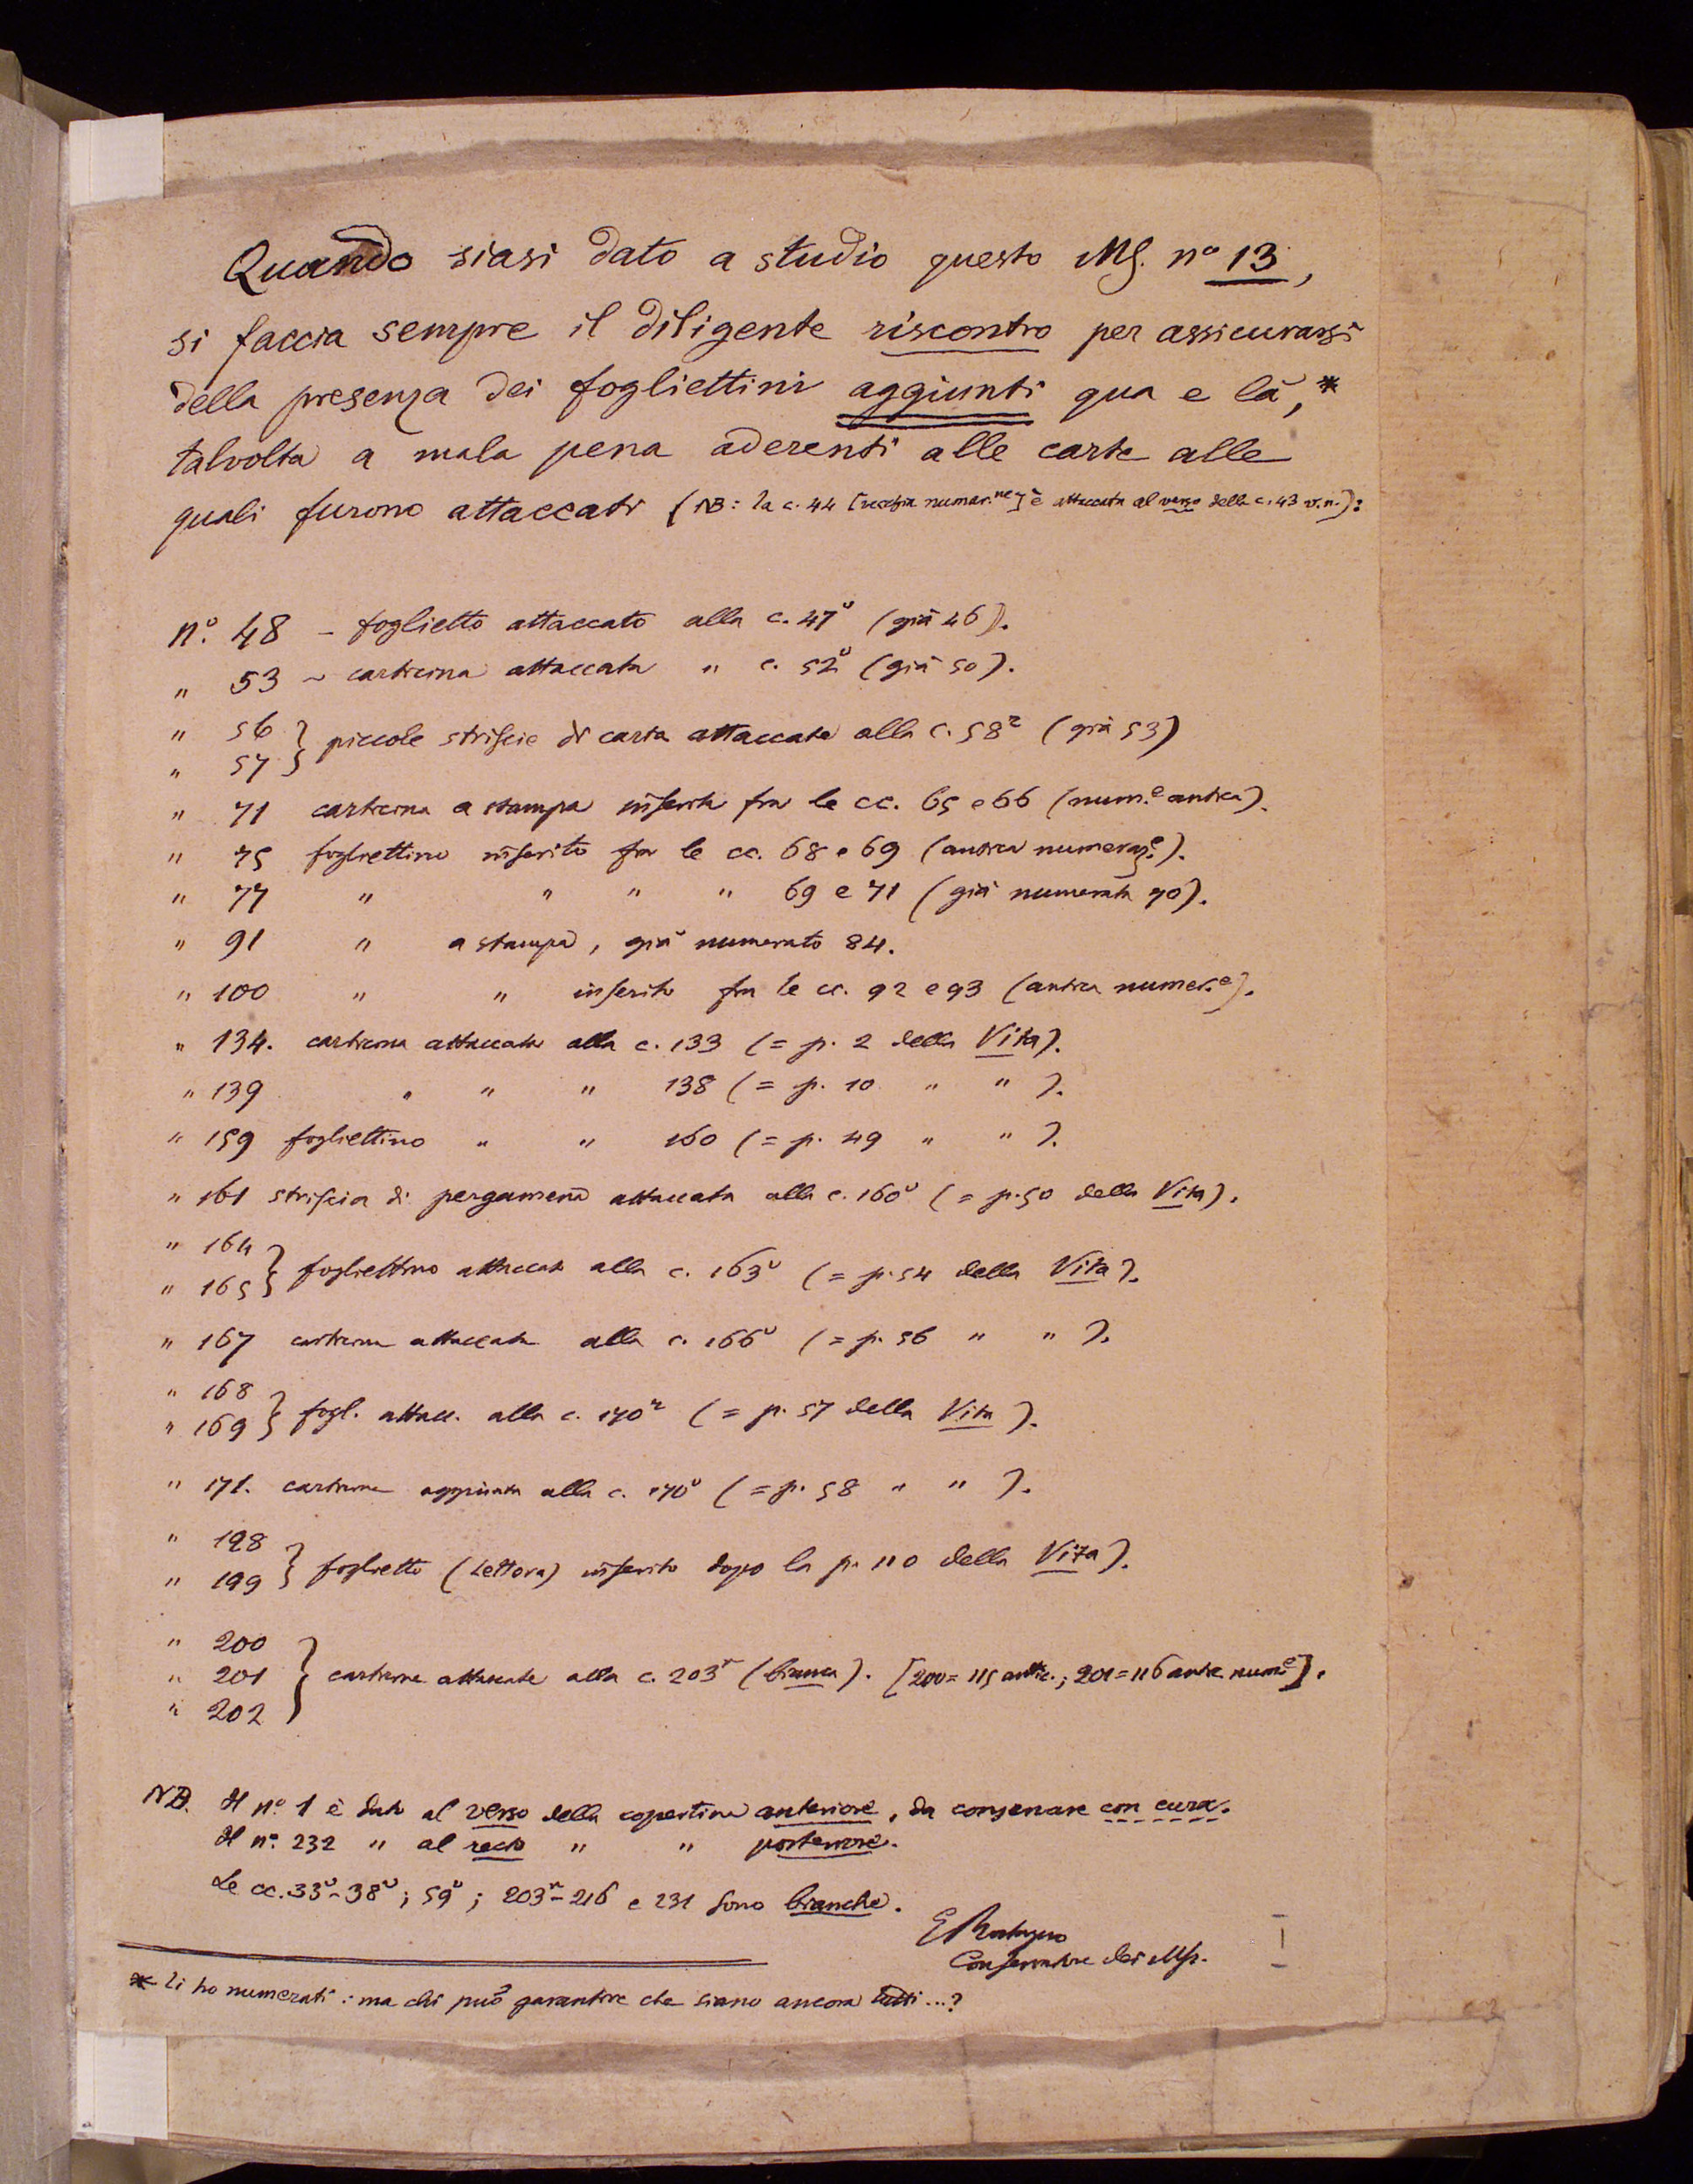 Quando siasi dato a studio questo MS. nº 13,
si faccia sempre il diligente riscontro per assicurarsi
della presenza dei fogliettini aggiunti qua e là,*
talvolta a mala pena aderenti alle carte alle
quali furono attaccati (NB: la c. 44 [vecchia numer.ne] è attaccata al verso della c. 43 v.n.):
nº. 48 – foglietto attaccato alla c. 47v (già 46).
" 53 – carticina attaccata " c. 52v (già 50).
" 56
" 57 } piccole striscie di carta attaccate alla c. 58r (già 53)
" 71 carticina a stampa inserita fra le cc. 65 e 66 (num.e antica).
" 75 fogliettino inserito fra le cc. 68 e 69 (antica numeraz.e).
" 77 " " " " 69 e 71 (già numerata 70).
" 91 " a stampa, già numerato 84.
" 100 " " inserito fra le cc. 92 e 93 (antica numer.e).
" 134. carticina attaccata alla c. 133 (= p. 2 della Vita).
" 139 " " " 138 (= p. 10 " " ).
" 159 fogliettino " " 160 (= p. 49 " " ).
" 161 striscia di pergamena attaccata alla c. 160v (= p. 50 della Vita).
" 164
" 165 } fogliettino attaccato alla c. 163v (= p. 54 della Vita).
" 167 carticina attaccata alla c. 166v (= p. 56 " " ).
" 168
" 169 } fogl. attacc. alla c. 170r (= p. 57 della Vita).
" 171. carticina aggiunta alla c. 170v (= p. 58 " " ).
" 198
" 199 } foglietto (Lettera) inserito dopo la p. 110 della Vita).
" 200
" 201 } carticine attaccate alla c. 203r (bianca). [200 = 115 antic.; 201 = 116 antic. num.e].
" 202
NB. Il nº. 1 è dato al verso della copertina anteriore, da conservare con cura.
Il nº. 232 " al recto " " posteriore.
Le cc. 33v-38v; 59v; 203r-216 e 231 sono bianche.
E Rostagno
Conservatore dei Mss.
I
* li ho numerati: ma chi può garantire che siano ancora tutti...?